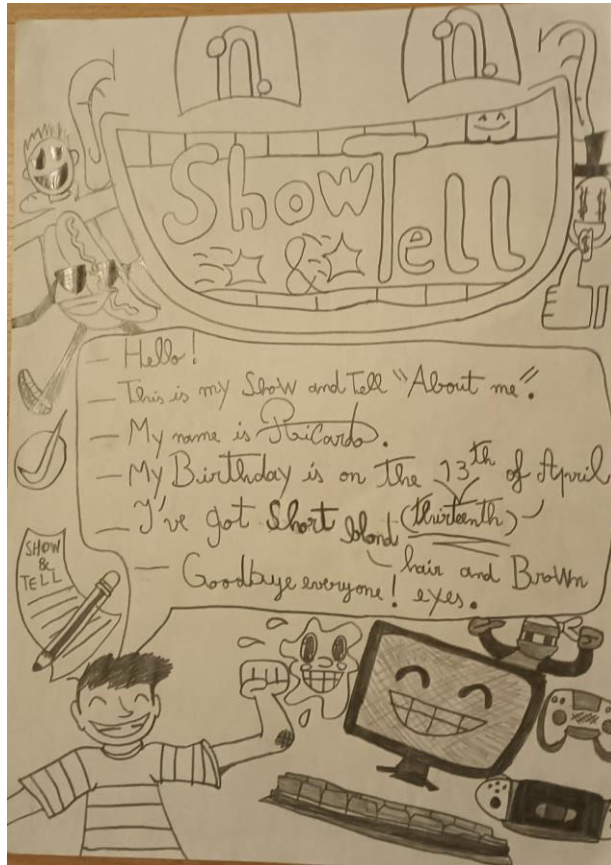 Show
& Tell
— Hello!
— This is my Show and Tell "About me".
— My name is Ricardo.
— My Birthday is on the 13th of April
— I've got Short blond (thirteenth)
hair and Brown
— Goodbye everyone! eyes.
SHOW
&
TELL